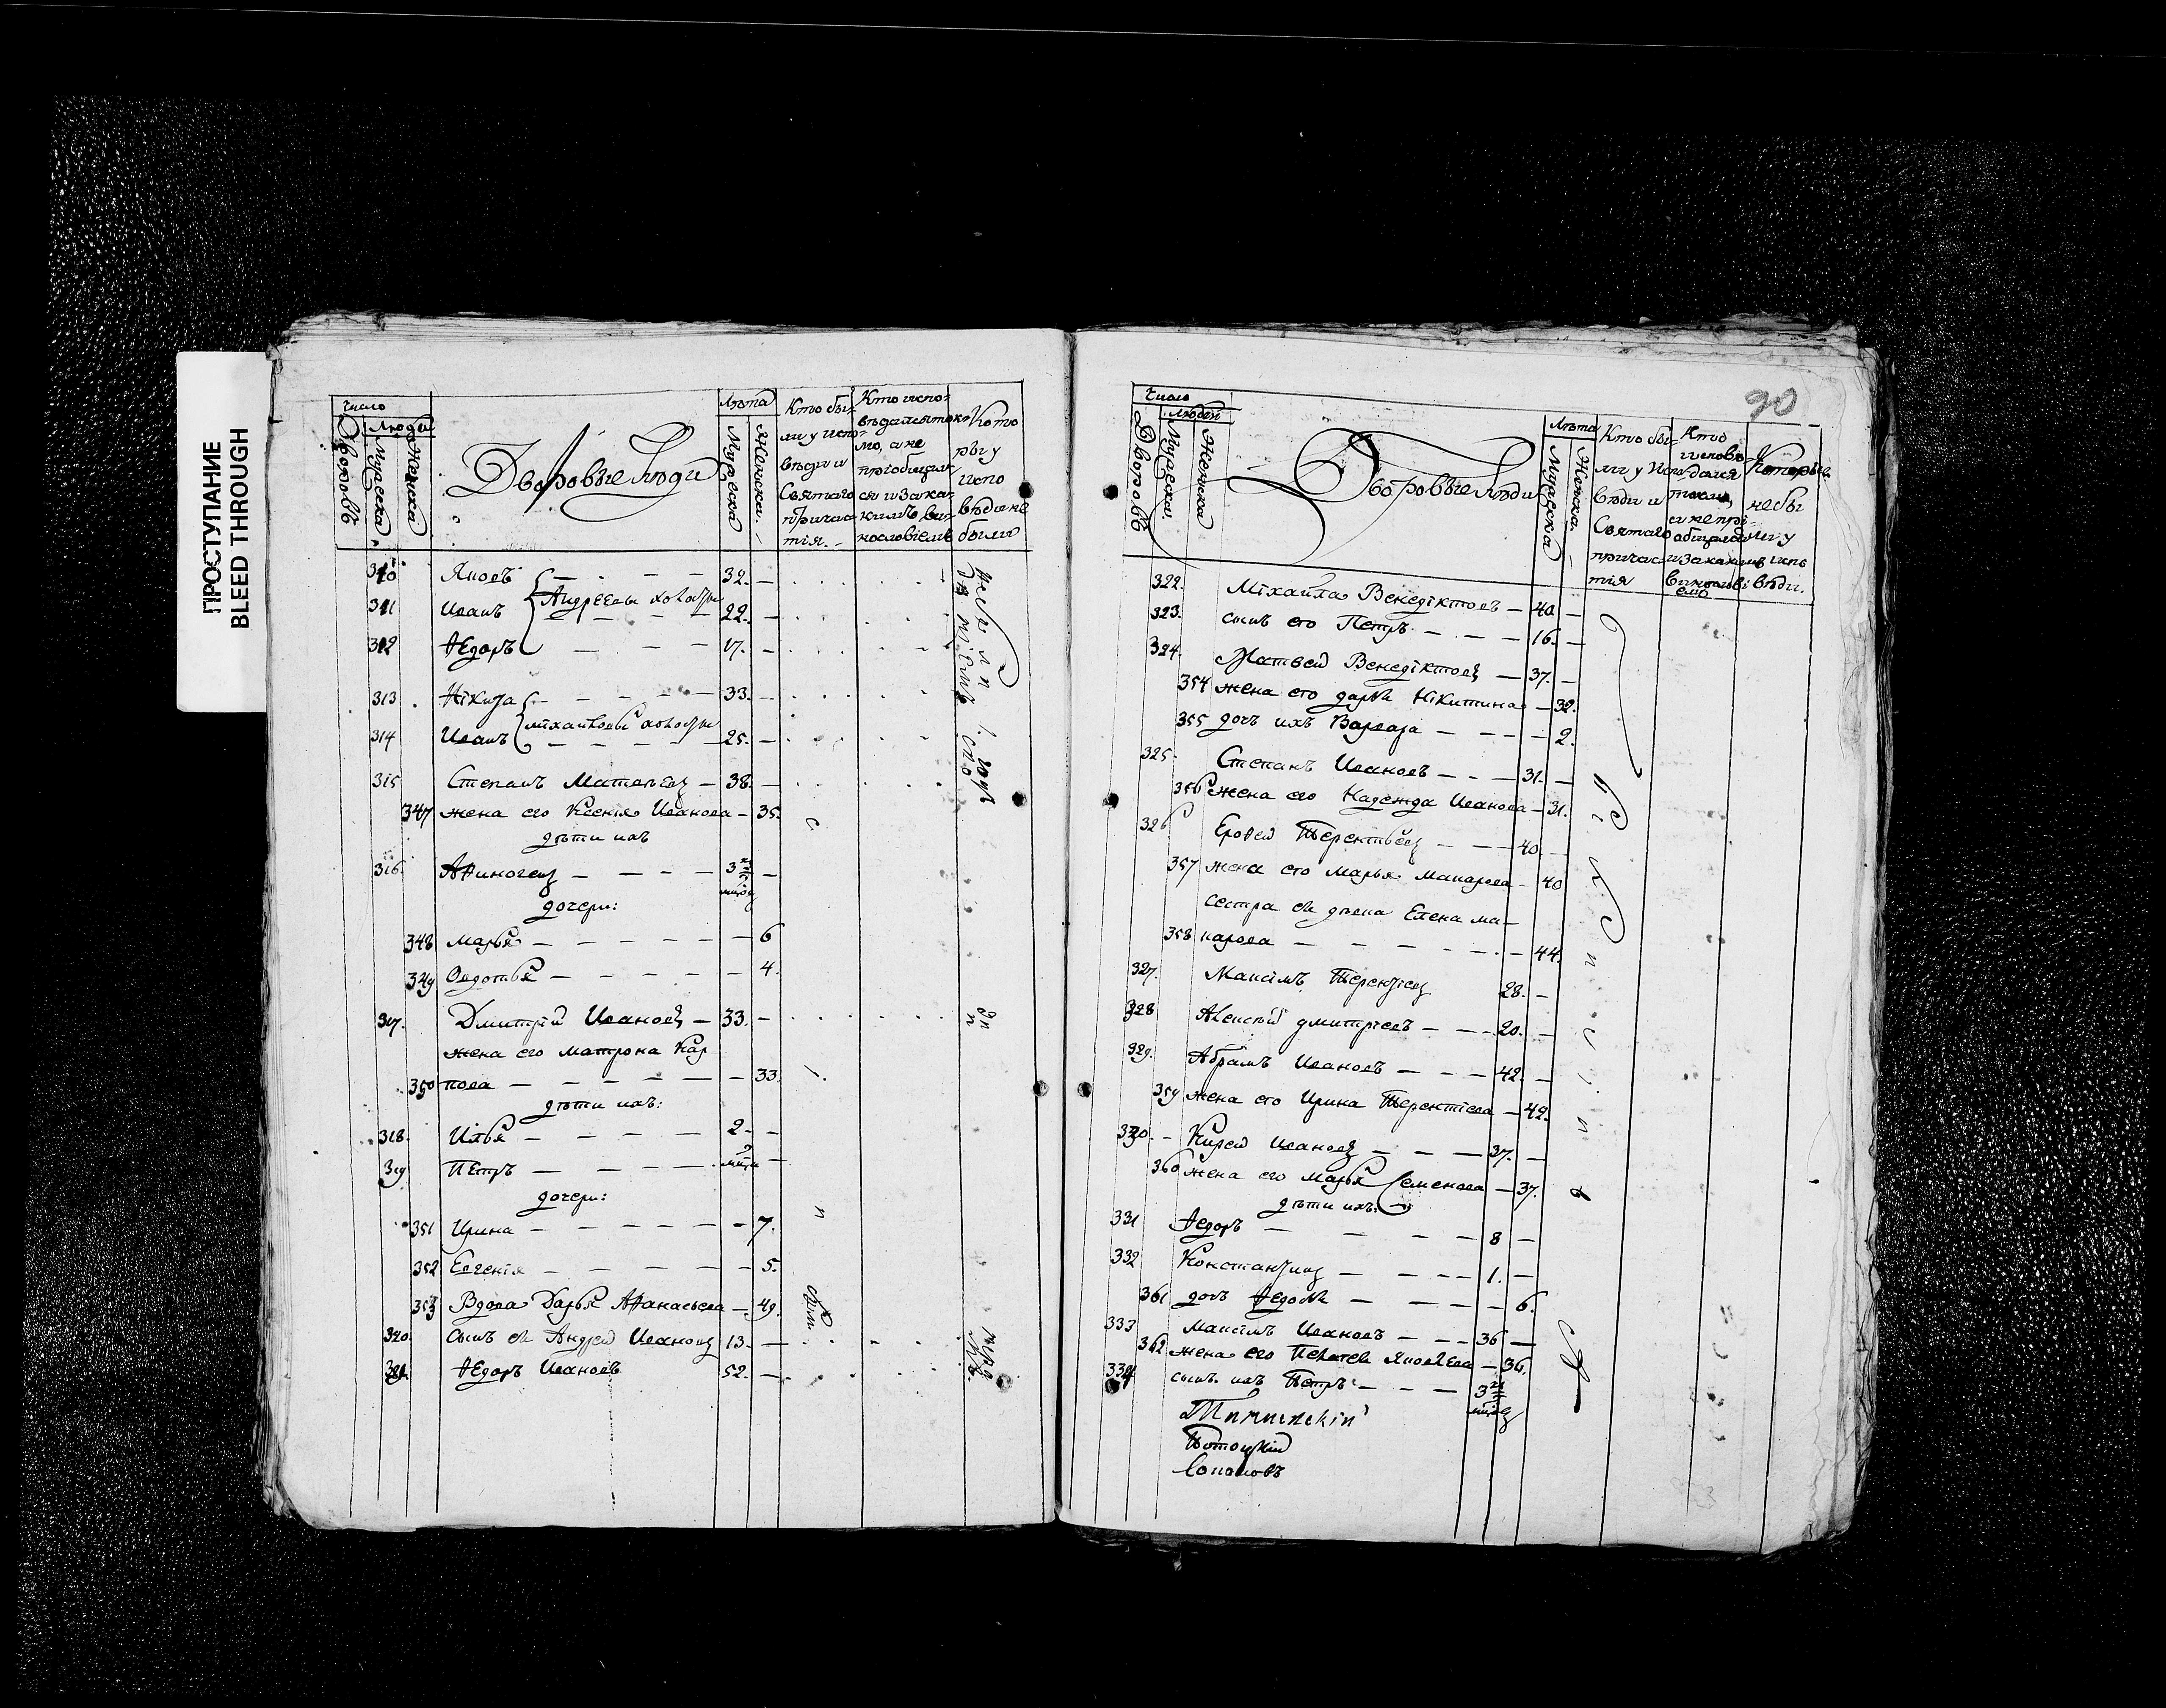 ПРОСТУПАНИЕ
BLEED THROUGH
Число
Дворовъ
Людей
Мужеска
Женска
Дворовые Люди
Лѣта
Мужеска
Женска.
Кто бы-
ли у испо-
вѣди и
Святаго
причас-
тія.
Кто испо-
вѣдался токо
мо, а не
приобщал
ся и за ка-
кимъ ви-
нословіемъ
Кото
рыи у
испо
вѣди не
были
310 Яковъ 32. —
311 Иванъ Андреевы холосты 22. —
312 Ѳедоръ 17. —
313 Нікита 33. —
314 Иванъ міхайловы холосты 25. —
315 Степанъ Матвѣевъ — 38. —
347 жена его Ксенія Иванова — 35.
дѣти ихъ
316. Аѳиногенъ — 3 —
дочери:
348 марья — 6
349 Овдотья — 4.
317. Дмитрій Ивановъ — 33. —
жена его матрона Кар
350 пова — 33.
дѣти ихъ:
318. Илья — 2. —
319 Петръ —
дочери:
351 Ирина — 7.
352 Евгенія — 5.
353 Вдова Дарья Аѳанасьева — 49.
320. сынъ ея Андрей Ивановъ 13. —
321. Ѳедоръ Ивановъ 52. —
90
Число
Дворовъ
Людей
Мужеска
Женска
Дворовые Люди
Лѣта
Мужеска
Женска.
Кто бы-
ли у Испо
вѣди и
Святаго
причас-
тія
Кто
исповѣ-
дался
токмо,
а не прі-
общался
и за какимъ
винослові
емъ
Которые
не бы
ли у
испо
вѣди.
322. Міхайла Венедіктовъ — 40. —
323. сынъ его Петръ. — 16. —
324. Матвей Венедіктовъ — 37. —
354 жена его дарья Нікитина — 32.
355 дочь ихъ Варвара — 2.
325. Степанъ Ивановъ — 31. —
356 жена его Надежда Иванова — 31.
326 Ероѳей Терентьевъ — 40. —
357 жена его Марья Макарова — 40
сестра ея девка Елена ма-
358 карова — 44.
327. Максімъ Терентіевъ 28. —
328 Алексѣй дмитріевъ — 20. —
329. Абрамъ Ивановъ — 42. —
359 жена его Ирина Терентіева — 42.
330. Кирей Ивановъ — 37. —
360 жена его Марья Семенова — 37.
дѣти ихъ:
331 Ѳедоръ — 8 —
332 Константинъ — 1. —
361 дочь Ѳедосья — 6.
333 Максімъ Ивановъ — 36 —
362 жена его Пелагея Яковлева — 36.
334 сынъ ихъ Петръ — 3
Потоцкій